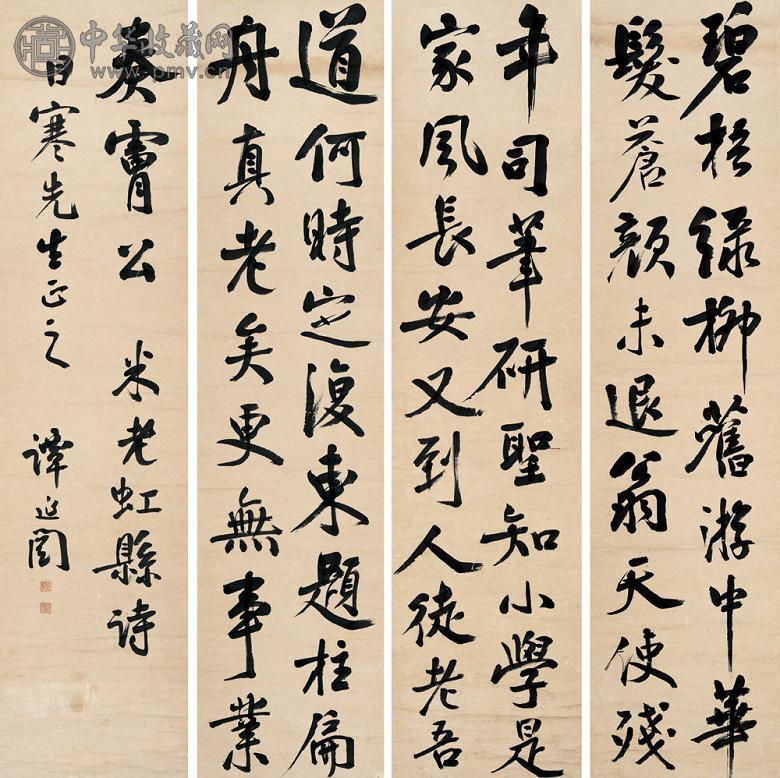 中华收藏网
www.pmv.cn
碧梧綠柳舊游中華
髮蒼顏未退翁天使殘
年司筆研聖知小學是
家風長安又到人徒老吾
道何時定復東題柱扁
舟真老矣更無事業
奏膚公 米老虹縣詩
寒先生正之 譚延闓